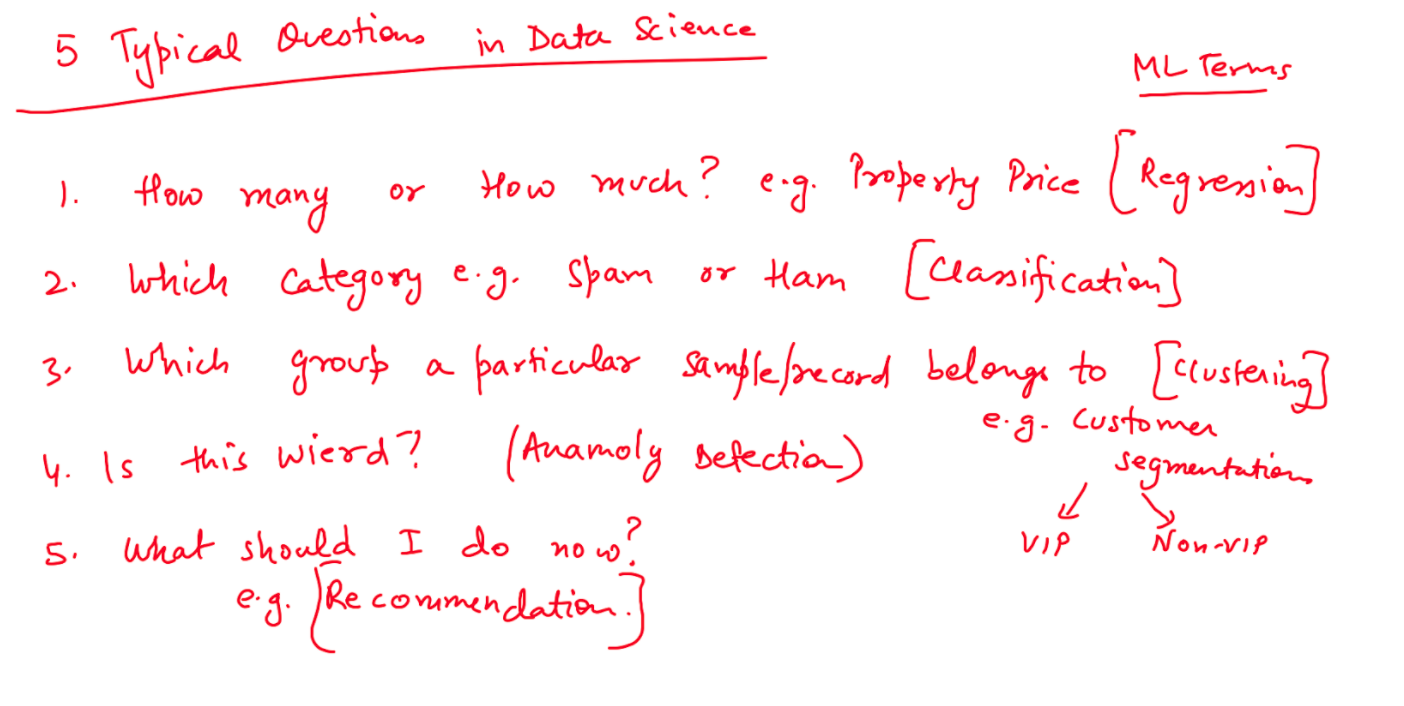 5 Typical Questions in Data Science
ML Terms
1. How many or How much? e.g. Property Price [Regression]
2. Which category e.g. Spam or Ham [Classification]
3. Which group a particular sample/record belongs to [Clustering]
e.g. Customer
segmentation
VIP Non-VIP
4. Is this wierd? (Anamoly Detection)
5. What should I do now?
e.g. [Recommendation.]